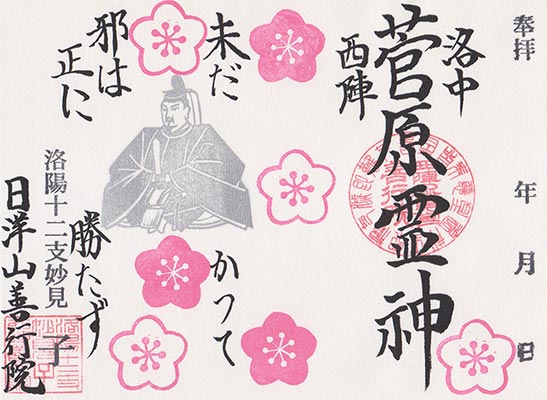 奉拝 年 月 日
洛中
西陣
菅原霊神
未だ
かつて
邪は
正に
勝たず
洛陽十二支妙見
子
日洋山善行院